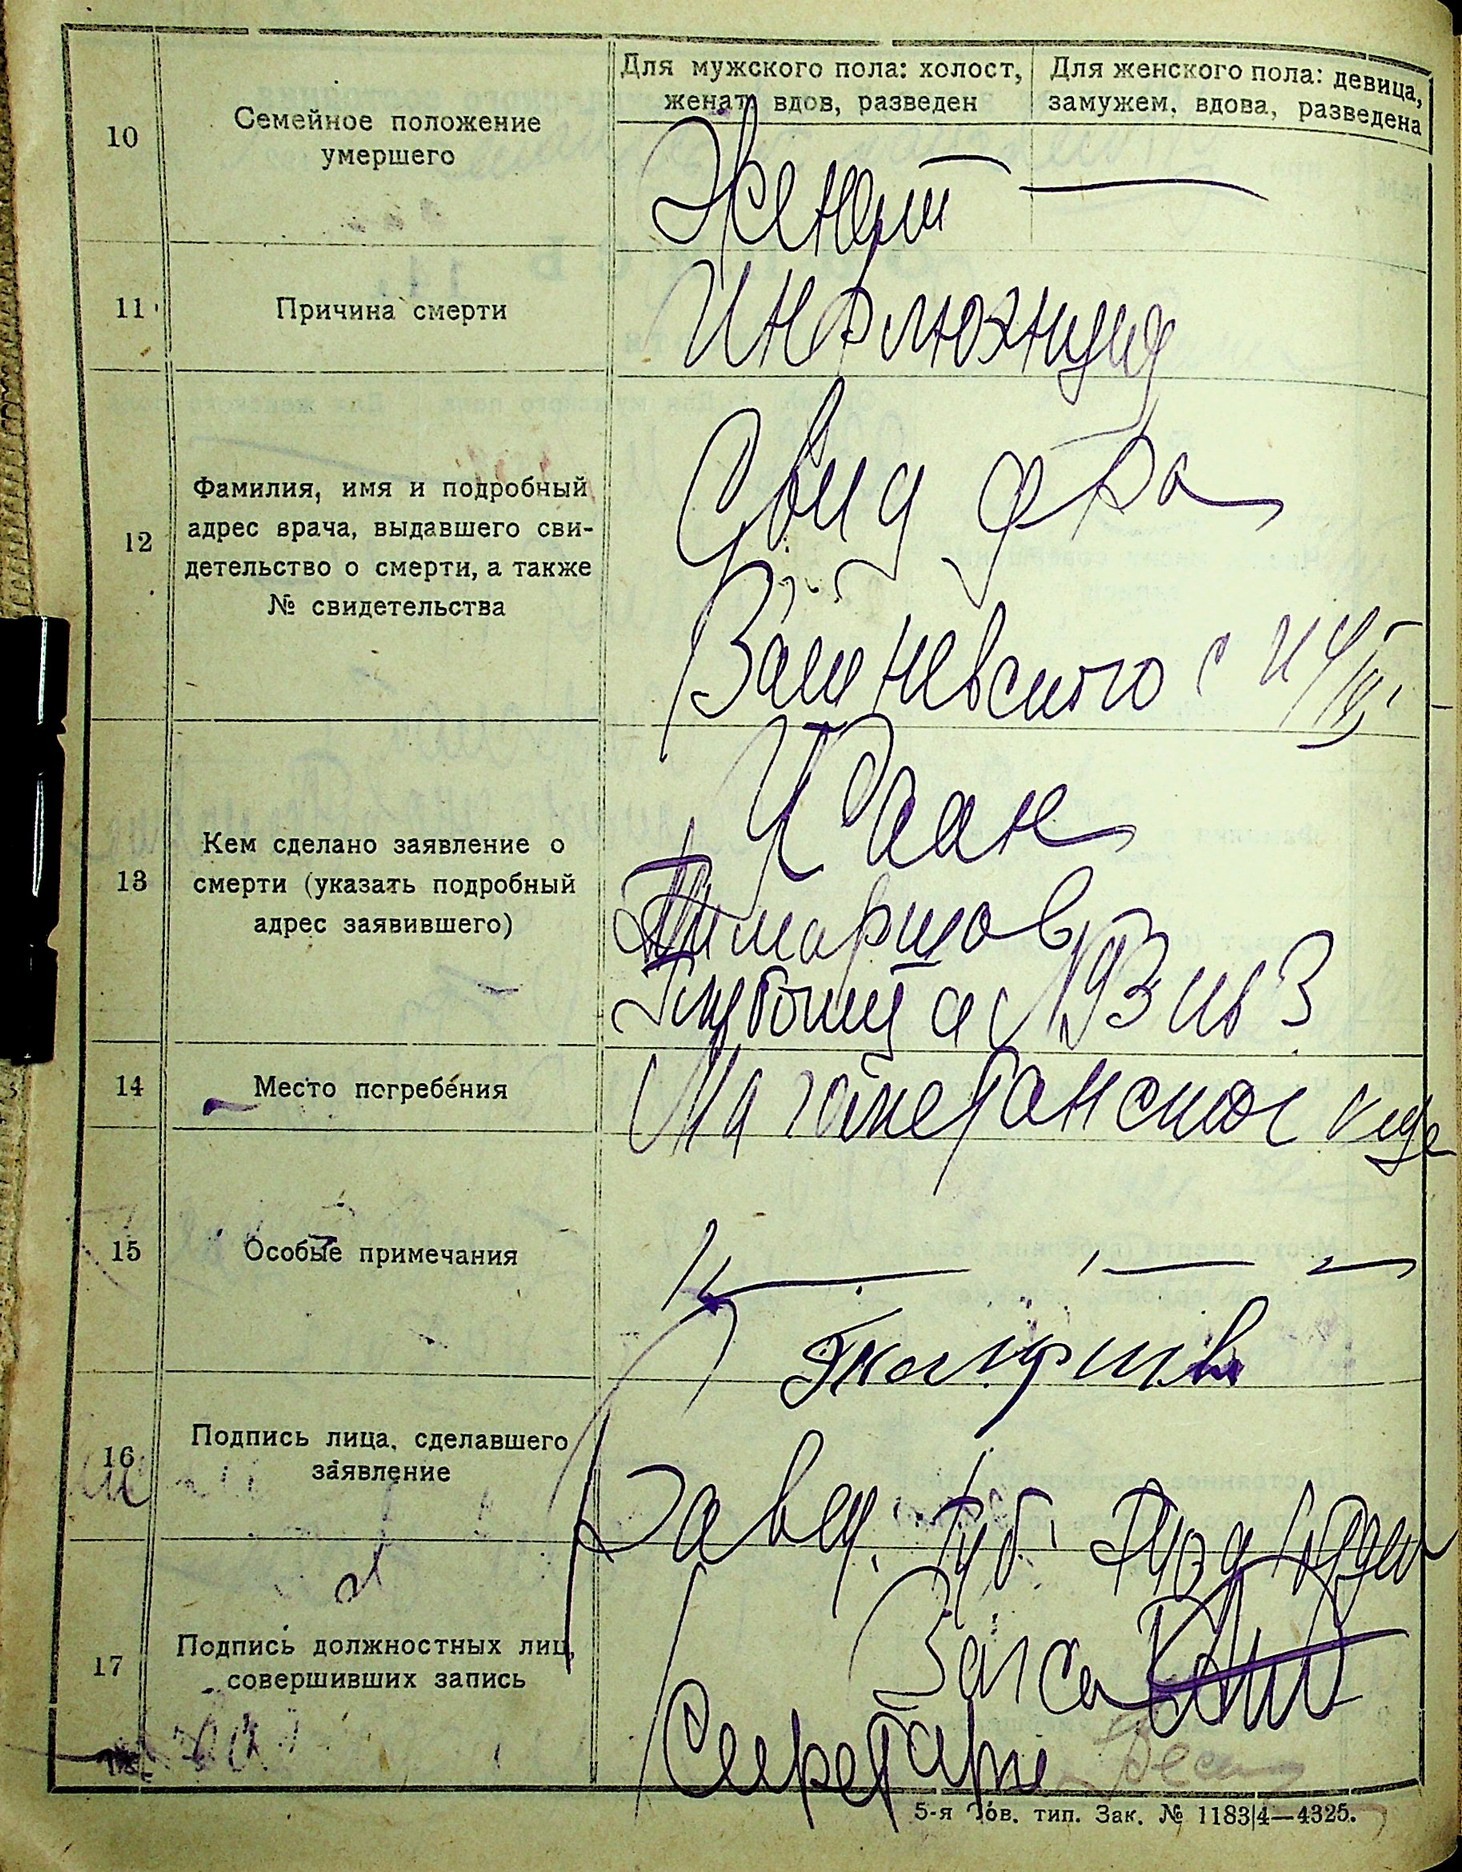 Для мужского пола: холост,
женат, вдов, разведен
Для женского пола: девица,
замужем, вдова, разведена
10
Семейное положение
умершего
Женат
11
Причина смерти
Инфлюэнция
12
Фамилия, имя и подробный
адрес врача, выдавшего сви-
детельство о смерти, а также
№ свидетельства
Свид д-ра
с
13
Кем сделано заявление о
смерти (указать подробный
адрес заявившего)
№ 93 кв 3
14
Место погребения
Магометанское клад
15
Особые примечания
16
Подпись лица, сделавшего
заявление
Завед. Губ.
17
Подпись должностных лиц,
совершивших запись
Загса
Секретарь
5-я Тов. тип. Зак. № 1183|4—4325.